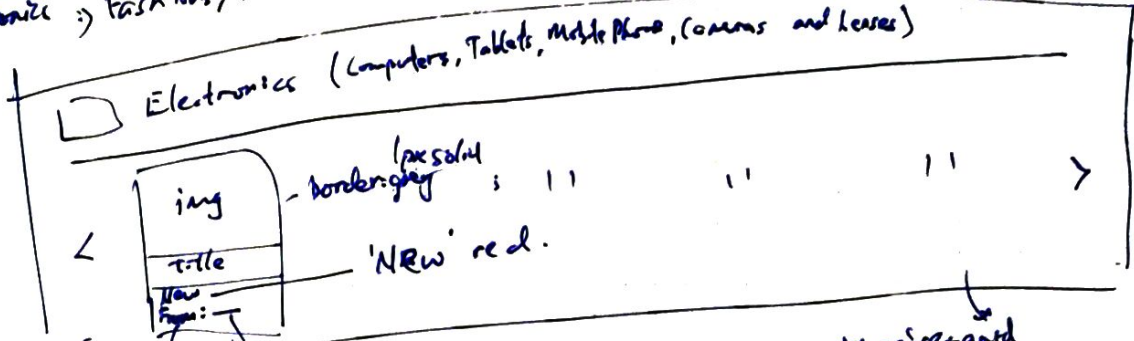 Electronics (Computers, Tablets, Mobile Phone, Cameras and Lenses)
img
1px solid
border: grey ; 11 11 11 >
<
title
'NEW' red.
New
From: